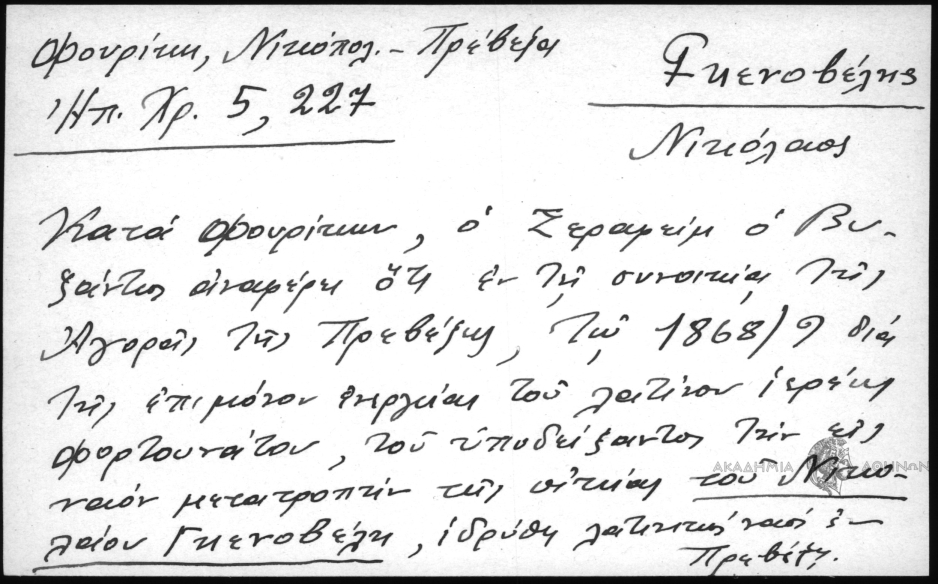 Φουρίκη, Νικόπολ. - Πρέβεζα
Ἠπ. Χρ. 5, 227
Γκενοβέλης
Νικόλαος
Κατά Φουρίκην, ὁ Σεραφείμ ὁ Βυ-
ζάντιος ἀναφέρει ὅτι ἐν τῇ συνοικίᾳ τῆς
Ἀγορᾶς τῆς Πρεβέζης, τῷ 1868/9 διά
τῆς ἐπιμόνου ἐνεργείας τοῦ λατίνου ἱερέως
Φορτουνάτου, τοῦ ὑποδείξαντος τήν εἰς
ναόν μετατροπήν τῆς οἰκίας τοῦ Νικο-
λάου Γκενοβέλη, ἱδρύθη λατινικός ναός ἐν
Πρεβέζῃ.
ΑΚΑΔΗΜΙΑ ΑΘΗΝΩΝ